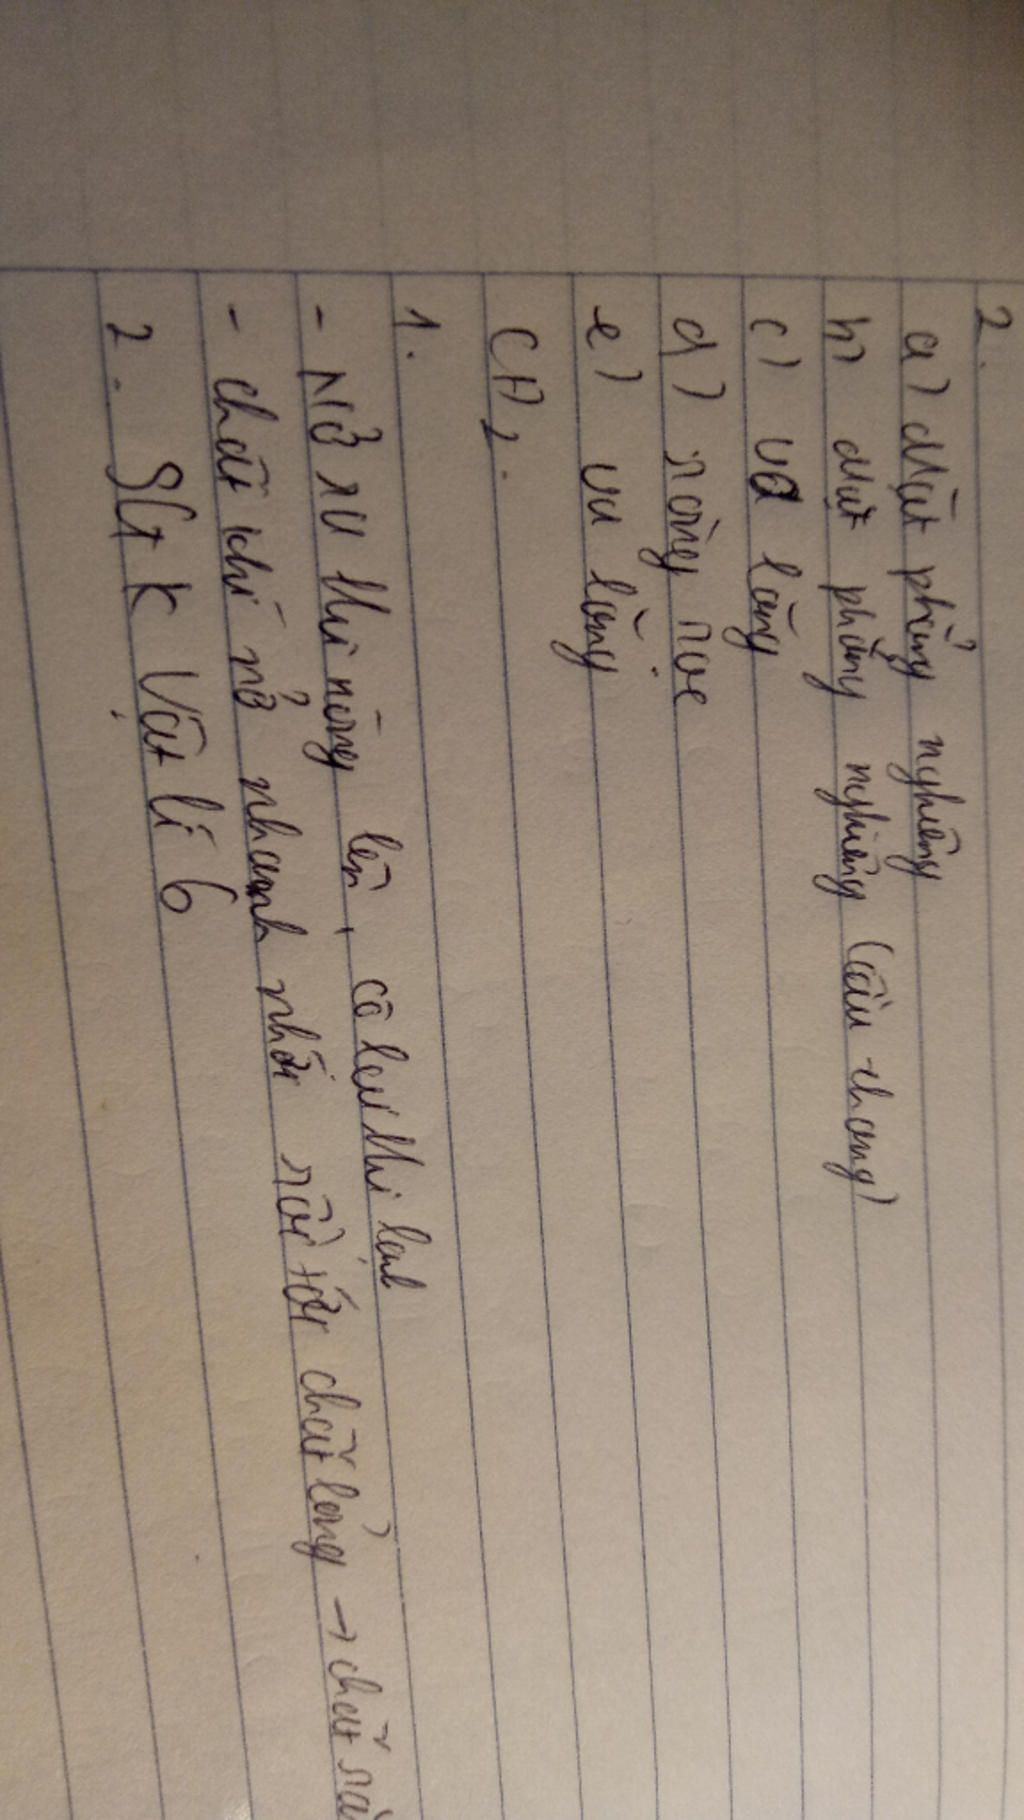 2.
a) Mặt phẳng nghiêng
b) Mặt phẳng nghiêng (cầu thang)
c)
d) ròng rọc
e)
CH2.
1.
- Nở ra khi nóng lên, co lại khi lạnh
- chất khí nở nhanh nhất rồi tới chất lỏng → chất
2. SGK Vật lí 6